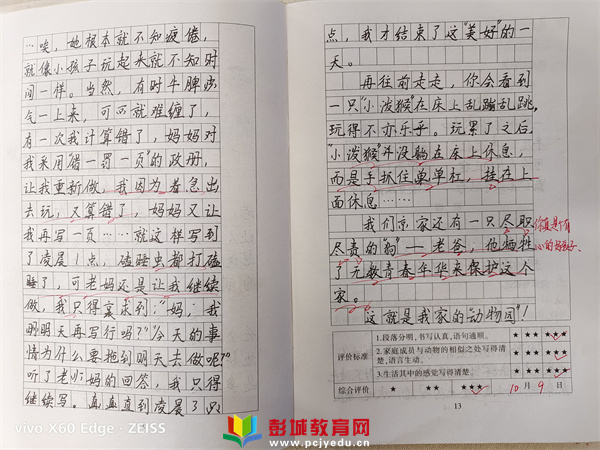 …唉，她根本就不知疲倦，
就像小孩子玩起来就不知时
间一样。当然，有时牛脾
气一上来，可就难缠了，
有一次我计算错了，妈妈对
我采用"错一罚一页"的政册，
让我重新做，我因为着急出
去玩，又算错了，妈妈又让
我再写一页……就这样写到
了凌晨1点，瞌睡虫都打瞌
睡了，可老妈还是让我继续
做，我只得哀求到："妈，我
明明天再写行吗？""今天的事
情为什么要拖到明天去做呢？"
听了老妈的回答，我只得
继续写。直到凌晨3
点，我才结束了这"美好"的一
天。
再往前走走，你会看到
一只"小泼猴"在床上乱蹦乱跳，
玩得不亦乐乎。玩累了之后，
"小泼猴"并没躺在床上休息，
而是手抓住单单杠，挂在上
面休息……
我们家还有一只尽职
尽责的"豹"——老爸，他牺牲
了无数青春年华来保护这个
家。
这就是我家的"动物园"！
你真是个有
心的好孩子、
评价标准
1.段落分明，书写认真，语句通顺。 ★ ★★ ★★★
2.家庭成员与动物的相似之处写得清
楚，语言生动。 ★ ★★ ★★★
3.生活其中的感觉写得清楚。 ★ ★★ ★★★
综合评价 ★ ★★ ★★★ 10月9日
13
vivo X60 Edge · ZEISS
彭城教育网
www.pcjyedu.cn